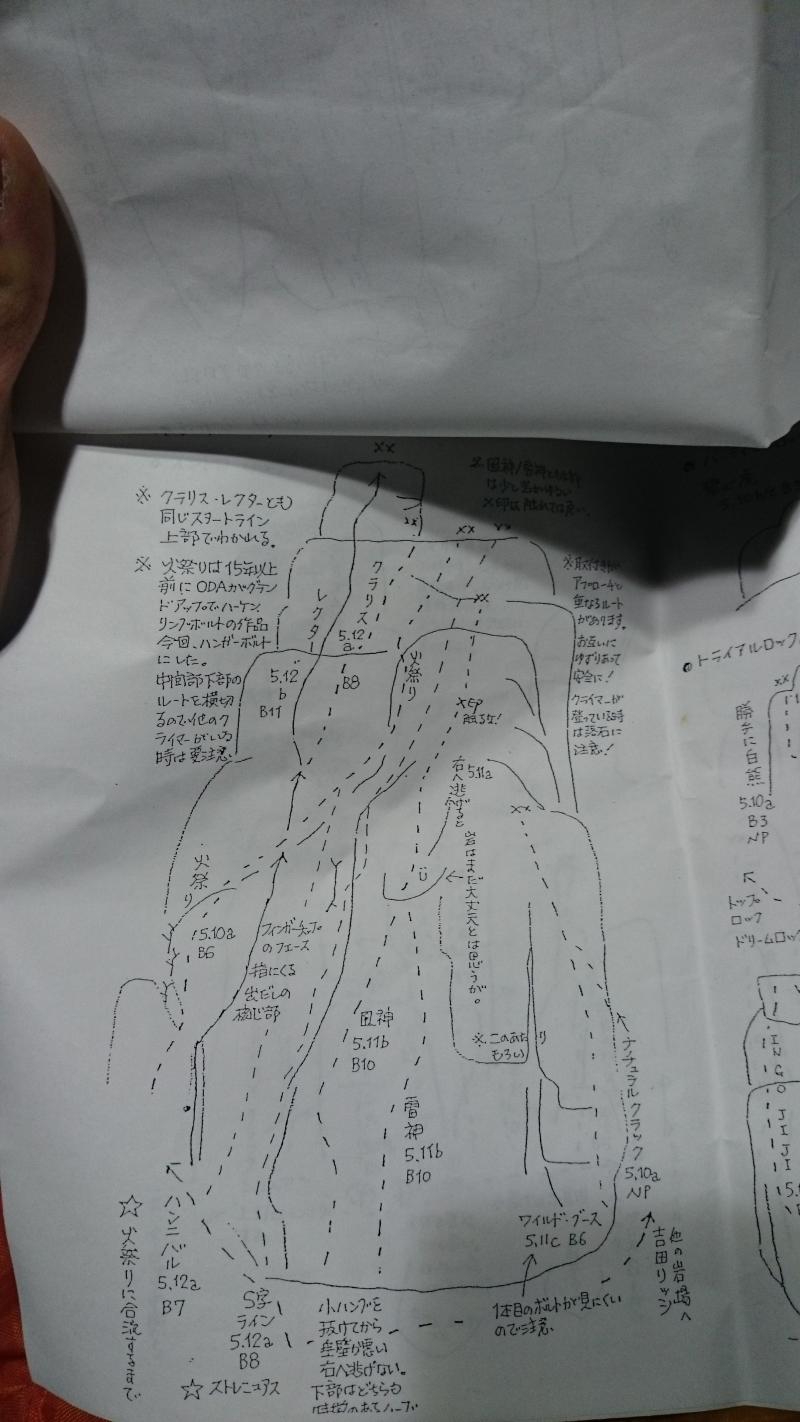 ××
※ クラリス・レクターとも
同じスタートライン
上部でわかれる。
※ 火祭りは15年以上
前にODAがグラン
ドアップでハーケン、
リングボルトの作品
今回、ハンガーボルト
にした。
中間部下部の
ルートを横切
るので他のク
ライマーがいる
時は要注意
※ 風神/雷神とも上部
は少し岩がゆるい
×印は触れては良い。
××
××
××
××
クラリス
5.12
a
B8
レクター
5.12
b
B11
火祭り
××
×印
触るな!
※取付きが
アプローチと
重なるルート
があります。
お互いに
ゆずりあって
安全に!
クライマーが
登っている時
は落石に
注意!
5.11a
右へ逃げると
岩はまだ大丈夫とは思うが。
××
火祭り
5.10a
B6
フィンガーチップ
のフェース
指にくる
出だしの
核心部
風神
5.11b
B10
雷神
5.11b
B10
※このあたり
もろい
ナチュラルクラック
5.10a
NP
ワイルド・ブース
5.11c B6
1本目のボルトが見にくい
ので注意
他の岩場へ
吉田リッジ
ハンニバル
5.12a
B7
☆ 火祭りに合流するまで
S字
ライン
5.12a
B8
☆ ストレニュアス
小ハングを
抜けてから
垂壁が悪い
右へ逃げない。
下部はどちらも
トライアルロック
××
勝手に白熊
5.10a
B3
NP
トップ
ロック
ドリームロック
INGO JIJI